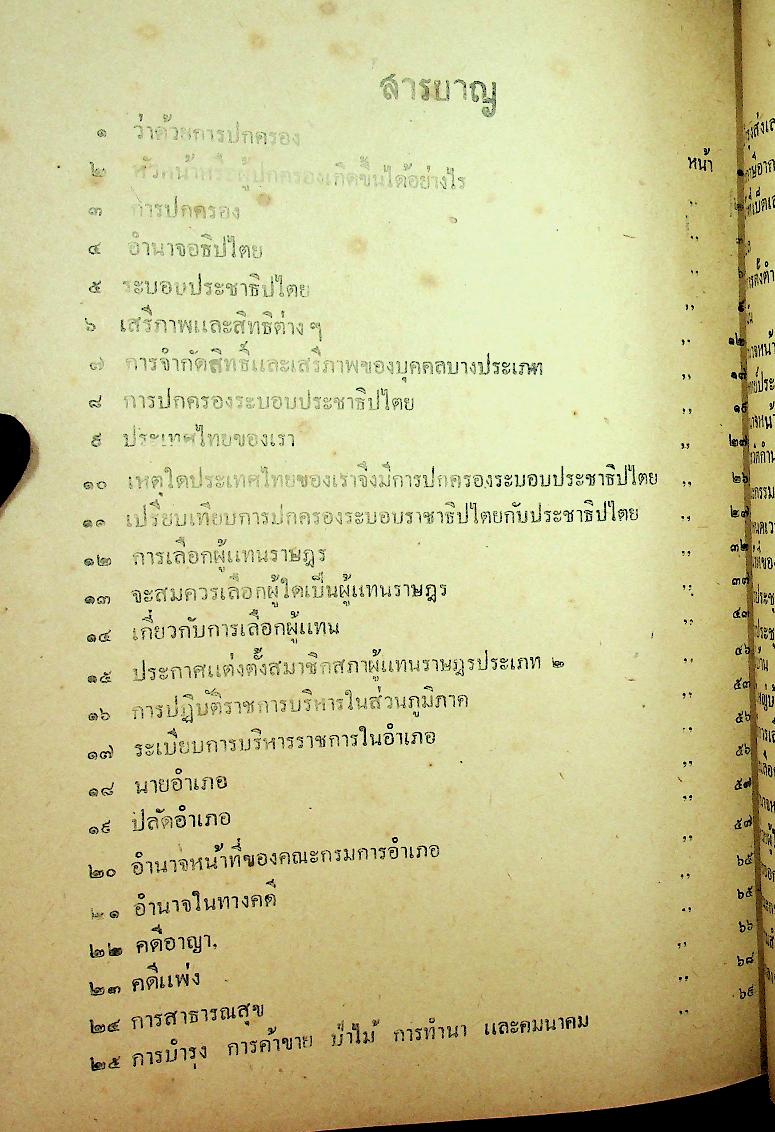 สารบาญ
หน้า
๑ ว่าด้วยการปกครอง
๒ หัวหน้าหรือผู้ปกครองเกิดขึ้นได้อย่างไร ,,
๓ การปกครอง ,,
๔ อำนาจอธิปไตย ,,
๕ ระบอบประชาธิปไตย ,,
๖ เสรีภาพและสิทธิต่าง ๆ ,, ๑๒
๗ การจำกัดสิทธิ์และเสรีภาพของบุคคลบางประเภท ,, ๑๗
๘ การปกครองระบอบประชาธิปไตย ,, ๑๙
๙ ประเทศไทยของเรา ,, ๒๗
๑๐ เหตุใดประเทศไทยของเราจึงมีการปกครองระบอบประชาธิปไตย ,, ๒๖
๑๑ เปรียบเทียบการปกครองระบอบราชาธิปไตยกับประชาธิปไตย ,, ๒๗
๑๒ การเลือกผู้แทนราษฎร ,, ๓๒
๑๓ จะสมควรเลือกผู้ใดเป็นผู้แทนราษฎร ,, ๓๗
๑๔ เกี่ยวกับการเลือกผู้แทน ,, ๔๑
๑๕ ประกาศแต่งตั้งสมาชิกสภาผู้แทนราษฎรประเภท ๒ ,, ๔๖
๑๖ การปฏิบัติราชการบริหารในส่วนภูมิภาค ,, ๕๓
๑๗ ระเบียบการบริหารราชการในอำเภอ ,, ๕๖
๑๘ นายอำเภอ ,, ๕๖
๑๙ ปลัดอำเภอ ,, ๕๗
๒๐ อำนาจหน้าที่ของคณะกรมการอำเภอ ,, ๕๗
๒๑ อำนาจในทางคดี ,, ๖๕
๒๒ คดีอาญา, ,, ๖๕
๒๓ คดีแพ่ง ,, ๖๖
๒๔ การสาธารณสุข ,, ๖๘
๒๕ การบำรุง การค้าขาย ป่าไม้ การทำนา และคมนาคม ,, ๖๙